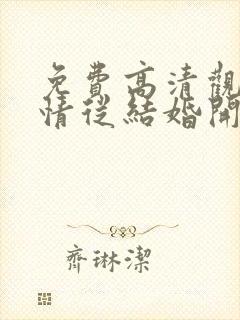 免費高清觀
情從結婚開
齊琳潔